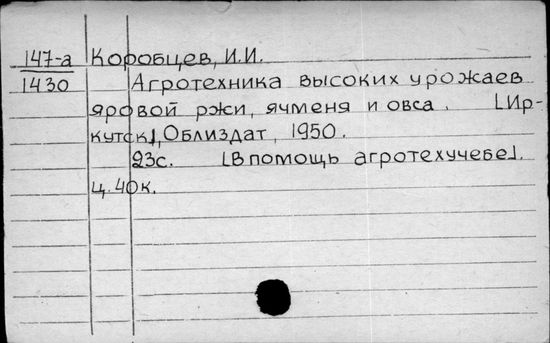 147-а Коробцев, И.И.
1430 Агротехника высоких урожаев
яровой ржи, ячменя и овса. [Ир-
кутск], Облиздат, 1950.
23с. [В помощь агротехучебе].
ц. 40к.